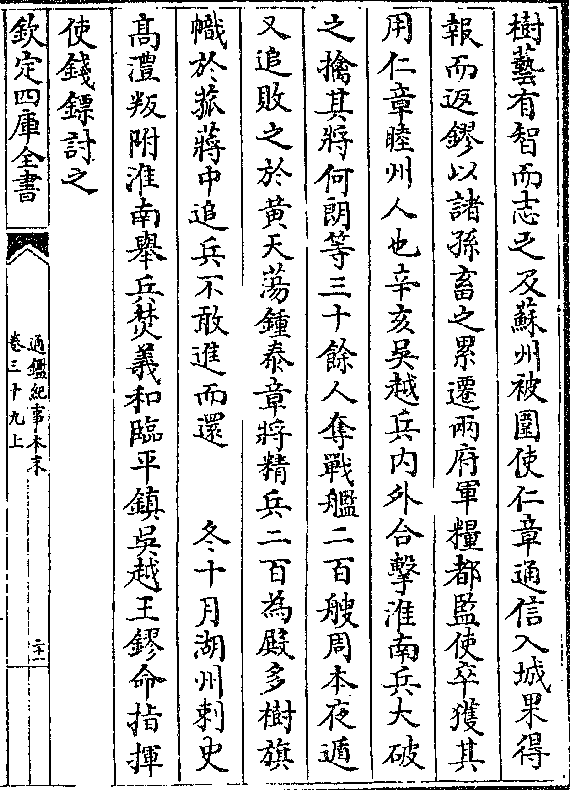 樹藝有智而志之及蘇州被圍使仁章通信入城果得
報而返鏐以諸孫畜之累遷兩府軍糧都監使卒獲其
用仁章睦州人也辛亥吳越兵内外合擊淮南兵大破
之擒其將何朗等三十餘人奪戰艦二百艘周本夜遁
又追敗之於黄天蕩鍾泰章將精兵二百為殿多樹旗
幟於菰蔣中追兵不敢進而還 冬十月湖州刺史
髙澧叛附淮南舉兵焚義和臨平鎮吳越王鏐命指揮
使錢鏢討之
欽定四庫全書
通鑑紀事本末
卷三十九上
二十一